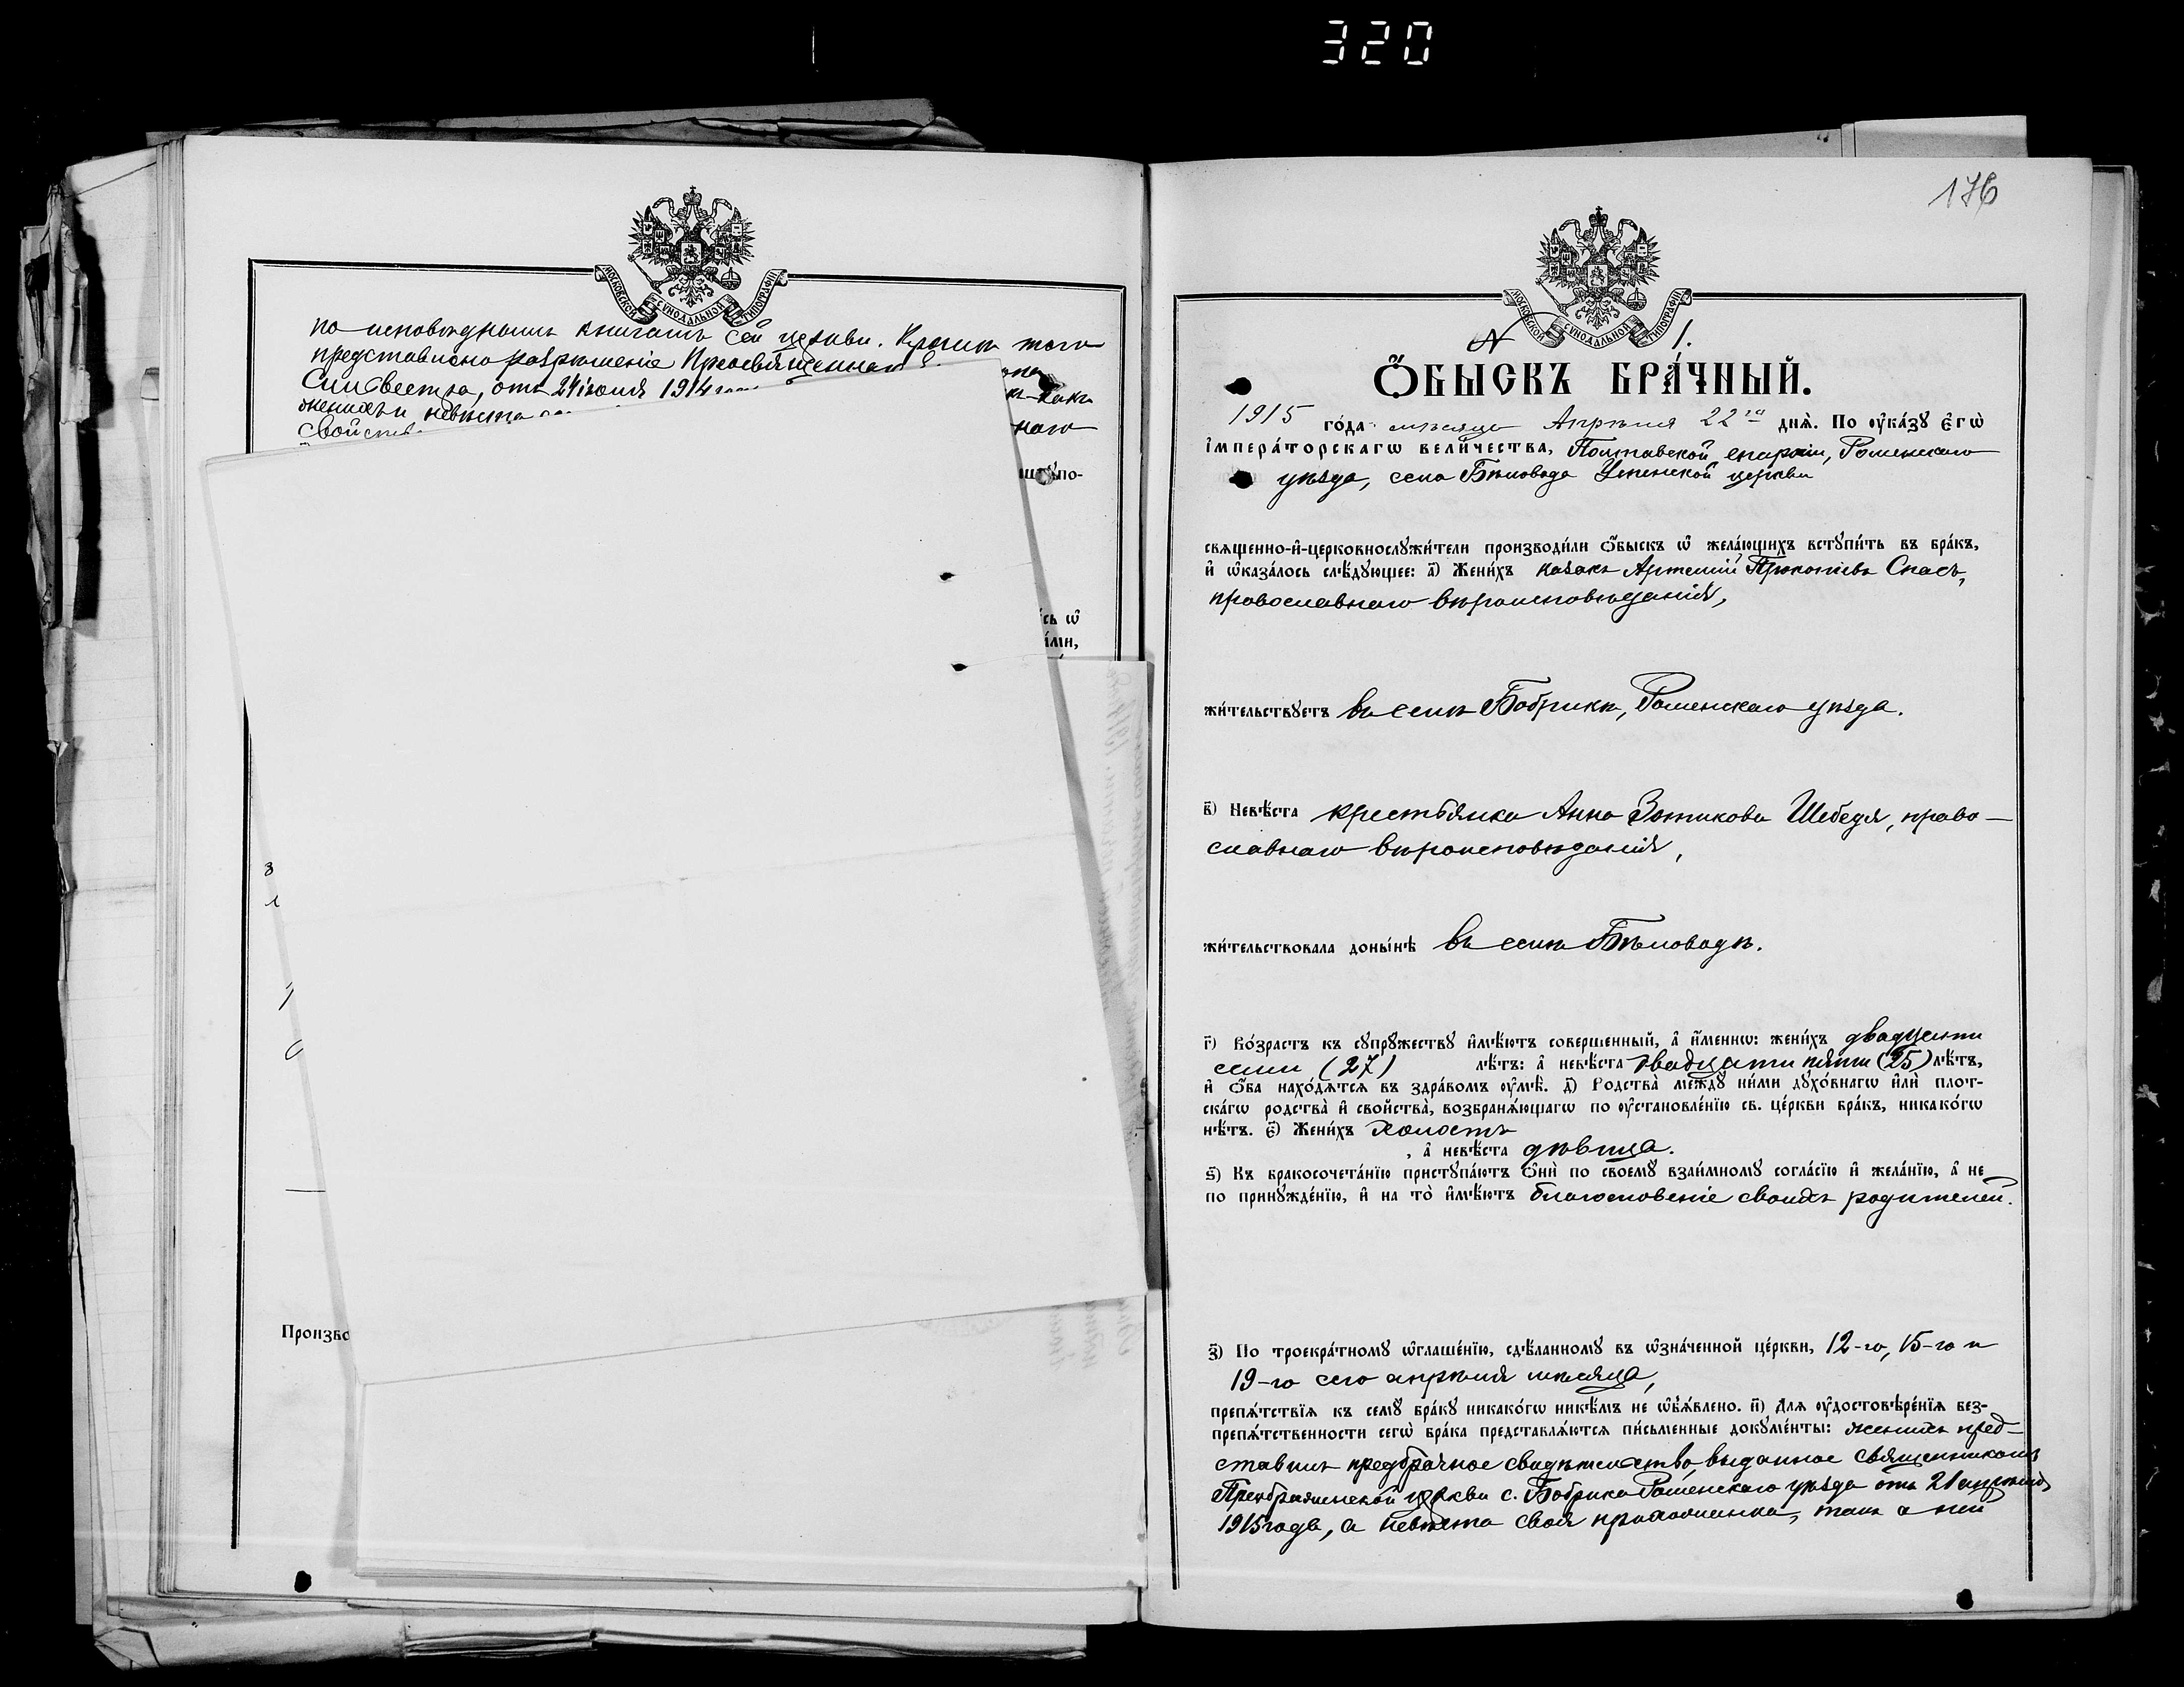 320
МОСКОВСКОЙ СѴНОДАЛЬНОЙ ТИПОГРАФІИ
по исповѣднымъ книгамъ сей церкви. Кромѣ того
представлено разрѣшеніе Преосвященнаго
Сильвестра, отъ 24 іюня 1914
женихъ и невѣста
какъ
свойств
наго
шꙋпо-
сь ѡ҆
Произво
176
МОСКОВСКОЙ СѴНОДАЛЬНОЙ ТИПОГРАФІИ
N 1.
Ѻ҆́БЫСКЪ БРА́ЧНЫЙ.
1915 го́да мѣсяца Апрѣля 22го днѧ̀. По ᲂу҆ка́зꙋ є҆гѡ̀
і҆мпера́торскагѡ вели́чества, Полтавской епархіи, Роменскаго
уѣзда, села Бѣловода Успенской церкви
свѧщенно-и҆-церковнослꙋжи́тели производи́ли ѻ҆́быскъ ѡ҆ жела́ющихъ вступи́ть въ бра́къ,
и҆ ѡ҆каза́лось слѣ́дꙋющее: а҃) Жени́хъ казакъ Артемій Прокопіевъ Спасъ,
православнаго вѣроисповѣданія,
жи́тельствꙋетъ въ селѣ Бобрикѣ, Роменскаго уѣзда.
в҃) Невѣ́ста крестьянка Анна Зотикова Шебедя, право-
славнаго вѣроисповѣданія,
жи́тельствовала доны́нѣ въ селѣ Бѣловодѣ.
г҃) Во́зрастъ къ сꙋпрꙋжествꙋ и҆мѣ́ютъ совершенный, а҆ и҆́менно: жени́хъ двадцати
семи (27) лѣ́тъ: а҆ невѣ́ста двадцати пяти (25) лѣ́тъ,
и҆ ѻ҆́ба нахо́дѧтсѧ въ здра́вомъ ᲂу҆мѣ̀. д҃) Родства̀ междꙋ̀ ни́ми дꙋхо́внагѡ и҆лѝ плот-
ска́гѡ родства̀ и҆ свойства̀, возбранѧ́ющагѡ по ᲂу҆становле́нїю св. це́ркви бра́къ, никако́гѡ
нѣ́тъ. є҃) Жени́хъ холостъ
, а҆ невѣ́ста дѣвица.
ѕ҃) Къ бракосочета́нїю пристꙋпа́ютъ ѻ҆нѝ по своемꙋ̀ взаи́мномꙋ согла́сїю и҆ жела́нїю, а҆ не
по принꙋжде́нїю, и҆ на то̀ и҆мѣ́ютъ благословеніе своихъ родителей.
з҃) По троекра́тномꙋ ѡ҆глаше́нїю, сдѣ́ланномꙋ въ ѡ҆зна́ченной це́ркви, 12-го, 15-го и
19-го сего апрѣля мѣсяца,
препѧ́тствїѧ къ семꙋ̀ бра́кꙋ никако́гѡ никѣ́мъ не ѡ҆б̾ѧ́влено. и҃) Для ᲂу҆достовѣре́нїѧ без-
препѧ́тственности сегѡ̀ бра́ка представлѧ́ютсѧ пи́сьменные докꙋме́нты: женихъ пред-
ставилъ предбрачное свидѣтельство, выданное священникомъ
Преображенской церкви с. Бобрика Роменскаго уѣзда отъ 21 апрѣля
1915 года, а невѣста своя прихожанка, какъ о ней